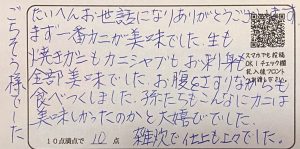 たいへんお世話になりありがとうございます
まず一番カニが美味でした。生も
焼きガニもカニシャブもお刺身
全部美味でした。お腹をさすりながらも
食べつくしました。孫たちもこんなにカニは
美味しかったのかと大喜びでした。
10点満点で 10 点 雑炊で仕上も上々でした。
ごちそう様でした
スマホでも投稿
OK!チェック欄
記入後フロント